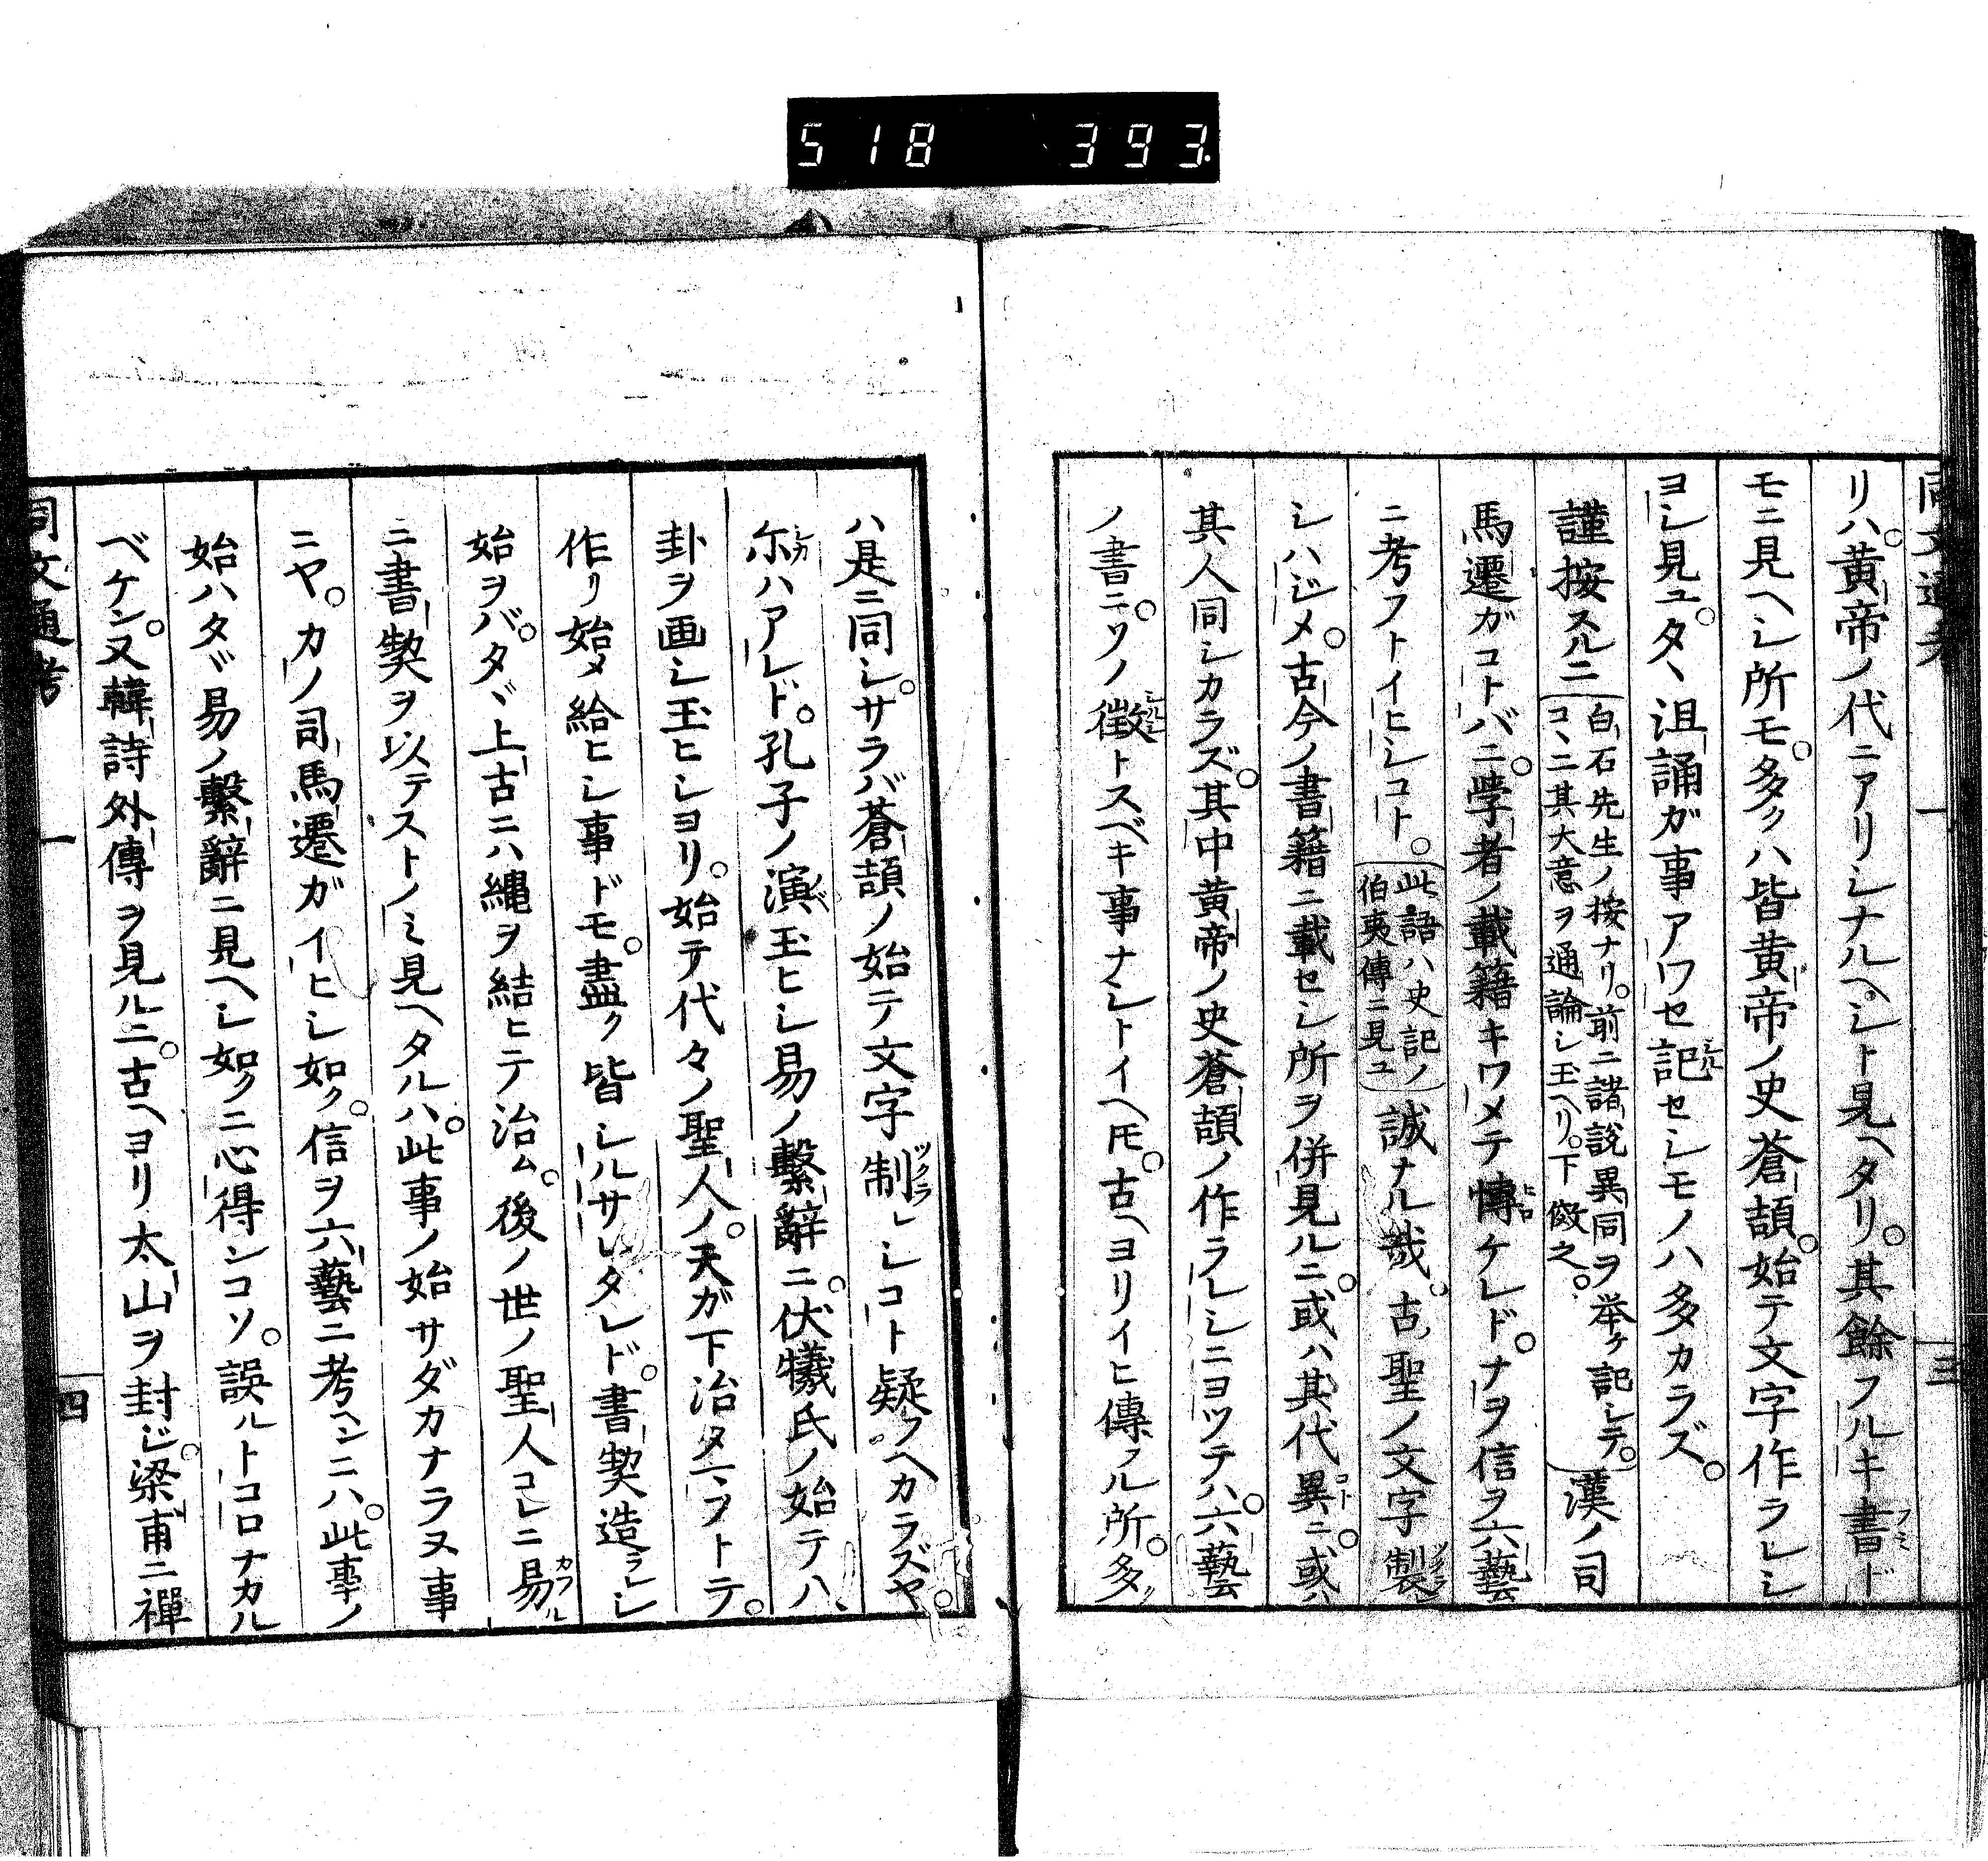 518 393.
同文通考 一 三
リハ。黄帝ノ代ニアリシナルヘシト見ヘタリ。其餘フルキ書ド
モニ見ヘシ所モ。多クハ皆黄帝ノ史蒼頡。始テ文字作ラレシ
ヨシ見ユ。タヽ沮誦ガ事アワセ記セシモノハ多カラズ。
謹按スルニ白石先生ノ按ナリ。前ニ諸説異同ヲ挙ケ記シテ。コヽニ其大意ヲ通論シ玉ヘリ。下倣之。漢ノ司
馬遷ガコトバニ。學者ノ載籍キワメテ慱ケレド。ナヲ信ヲ六藝
ニ考フトイヒシコト。此語ハ史記ノ伯夷傳ニ見ユ誠ナル哉。古ノ聖ノ文字製
シハジメ。古今ノ書籍ニ載セシ所ヲ併見ルニ。或ハ其代異ニ。或ハ
其人同シカラズ。其中黄帝ノ史蒼頡ノ作ラレシニヨツテハ。六藝
ノ書ニ。ソノ徴トスベキ事ナシトイヘ𪜈。古ヘヨリイヒ傳フル所。多ク
ハ是ニ同シ。サラバ蒼頡ノ始テ文字制レシコト疑フヘカラズヤ。
尓ハアレド。孔子ノ演玉ヒシ易ノ繫辭ニ。伏犧氏ノ始テ八
卦ヲ画シ玉ヒシヨリ。始テ代々ノ聖人ノ。天ガ下治タマフトテ。
作リ始メ給ヒシ事ドモ。盡ク皆シルサレタレド。書契造ラレシ
始ヲバ。タヾ上古ニハ縄ヲ結ヒテ治ム。後ノ世ノ聖人コレニ易ル
ニ書契ヲ以テストノミ見ヘタルハ。此事ノ始サダカナラヌ事
ニヤ。カノ司馬遷ガイヒシ如ク。信ヲ六藝ニ考ヘンニハ。此事ノ
始ハタヾ易ノ繫辭ニ見ヘシ如クニ心得ンコソ。誤ルトコロナカル
ベケン。又韓詩外傳ヲ見ルニ。古ヘヨリ太山ヲ封ジ。梁甫ニ禪
同文通考 一 四